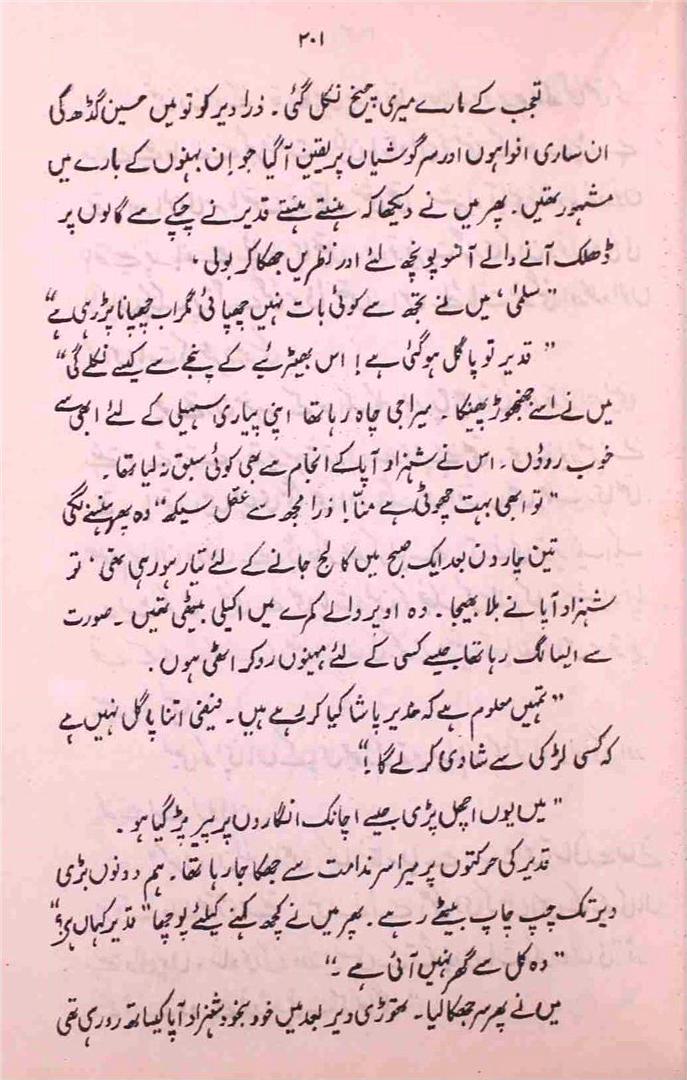 ۲۰۱
تعجب کے مارے میری چیخ نکل گئی۔ ذرا دیر کو تو میں حسین گڈھ کی
ان ساری افواہوں اور سرگوشیاں پر یقین آگیا جو اِن بہنوں کے بارے میں
مشہور تھیں۔ پھر میں نے دیکھا کہ ہنستے ہنستے قدیر نے چپکے سے گالوں پر
ڈھلک آنے والے آنسو پونچھ لئے اور نظریں جھکا کر بولی،
"سلمیٰ، میں نے تجھ سے کوئی بات نہیں چھپائی مگر اب چھپانا پڑ رہی ہے"
"قدیر تو پاگل ہو گئی ہے! اس بھیڑیئے کے پنجے سے کیسے نکلے گی"
میں نے اسے جھنجوڑ پھینکا۔ میرا جی چاہ رہا تھا اپنی پیاری سہیلی کے لئے ابھی سے
خوب روؤں۔ اس نے شہزاد آپا کے انجام سے بھی کوئی سبق نہ لیا تھا۔
"تو ابھی بہت چھوٹی ہے منّا! ذرا مجھ سے عقل سیکھ" وہ پھر ہنسنے لگی
تین چار دن بعد ایک صبح میں کالج جانے کے لئے تیار ہو رہی تھی، تو
شہزاد آپا نے بلا بھیجا۔ وہ اوپر والے کمرے میں اکیلی بیٹھی تھیں۔ صورت
سے ایسا لگ رہا تھا جیسے کسی کے لئے مہینوں رو کر اٹھی ہوں۔
"تمہیں معلوم ہے کہ قدیر پاشا کیا کر رہے ہیں۔ فیضی اتنا پاگل نہیں ہے
کہ کسی لڑکی سے شادی کر لے گا!"
"میں یوں اچھل پڑی جیسے اچانک انگاروں پر پیر پڑ گیا ہو۔
قدیر کی حرکتوں پر میرا سر ندامت سے جھکا جا رہا تھا۔ ہم دونوں بڑی
دیر تک چپ چاپ بیٹھے رہے۔ پھر میں نے کچھ کہنے کیلئے پوچھا "قدیر کہاں ہے؟"
"وہ کل سے گھر نہیں آئی ہے۔"
میں نے پھر سر جھکا لیا۔ تھوڑی دیر بعد میں خود بخود شہزاد آپا کیساتھ رو رہی تھی